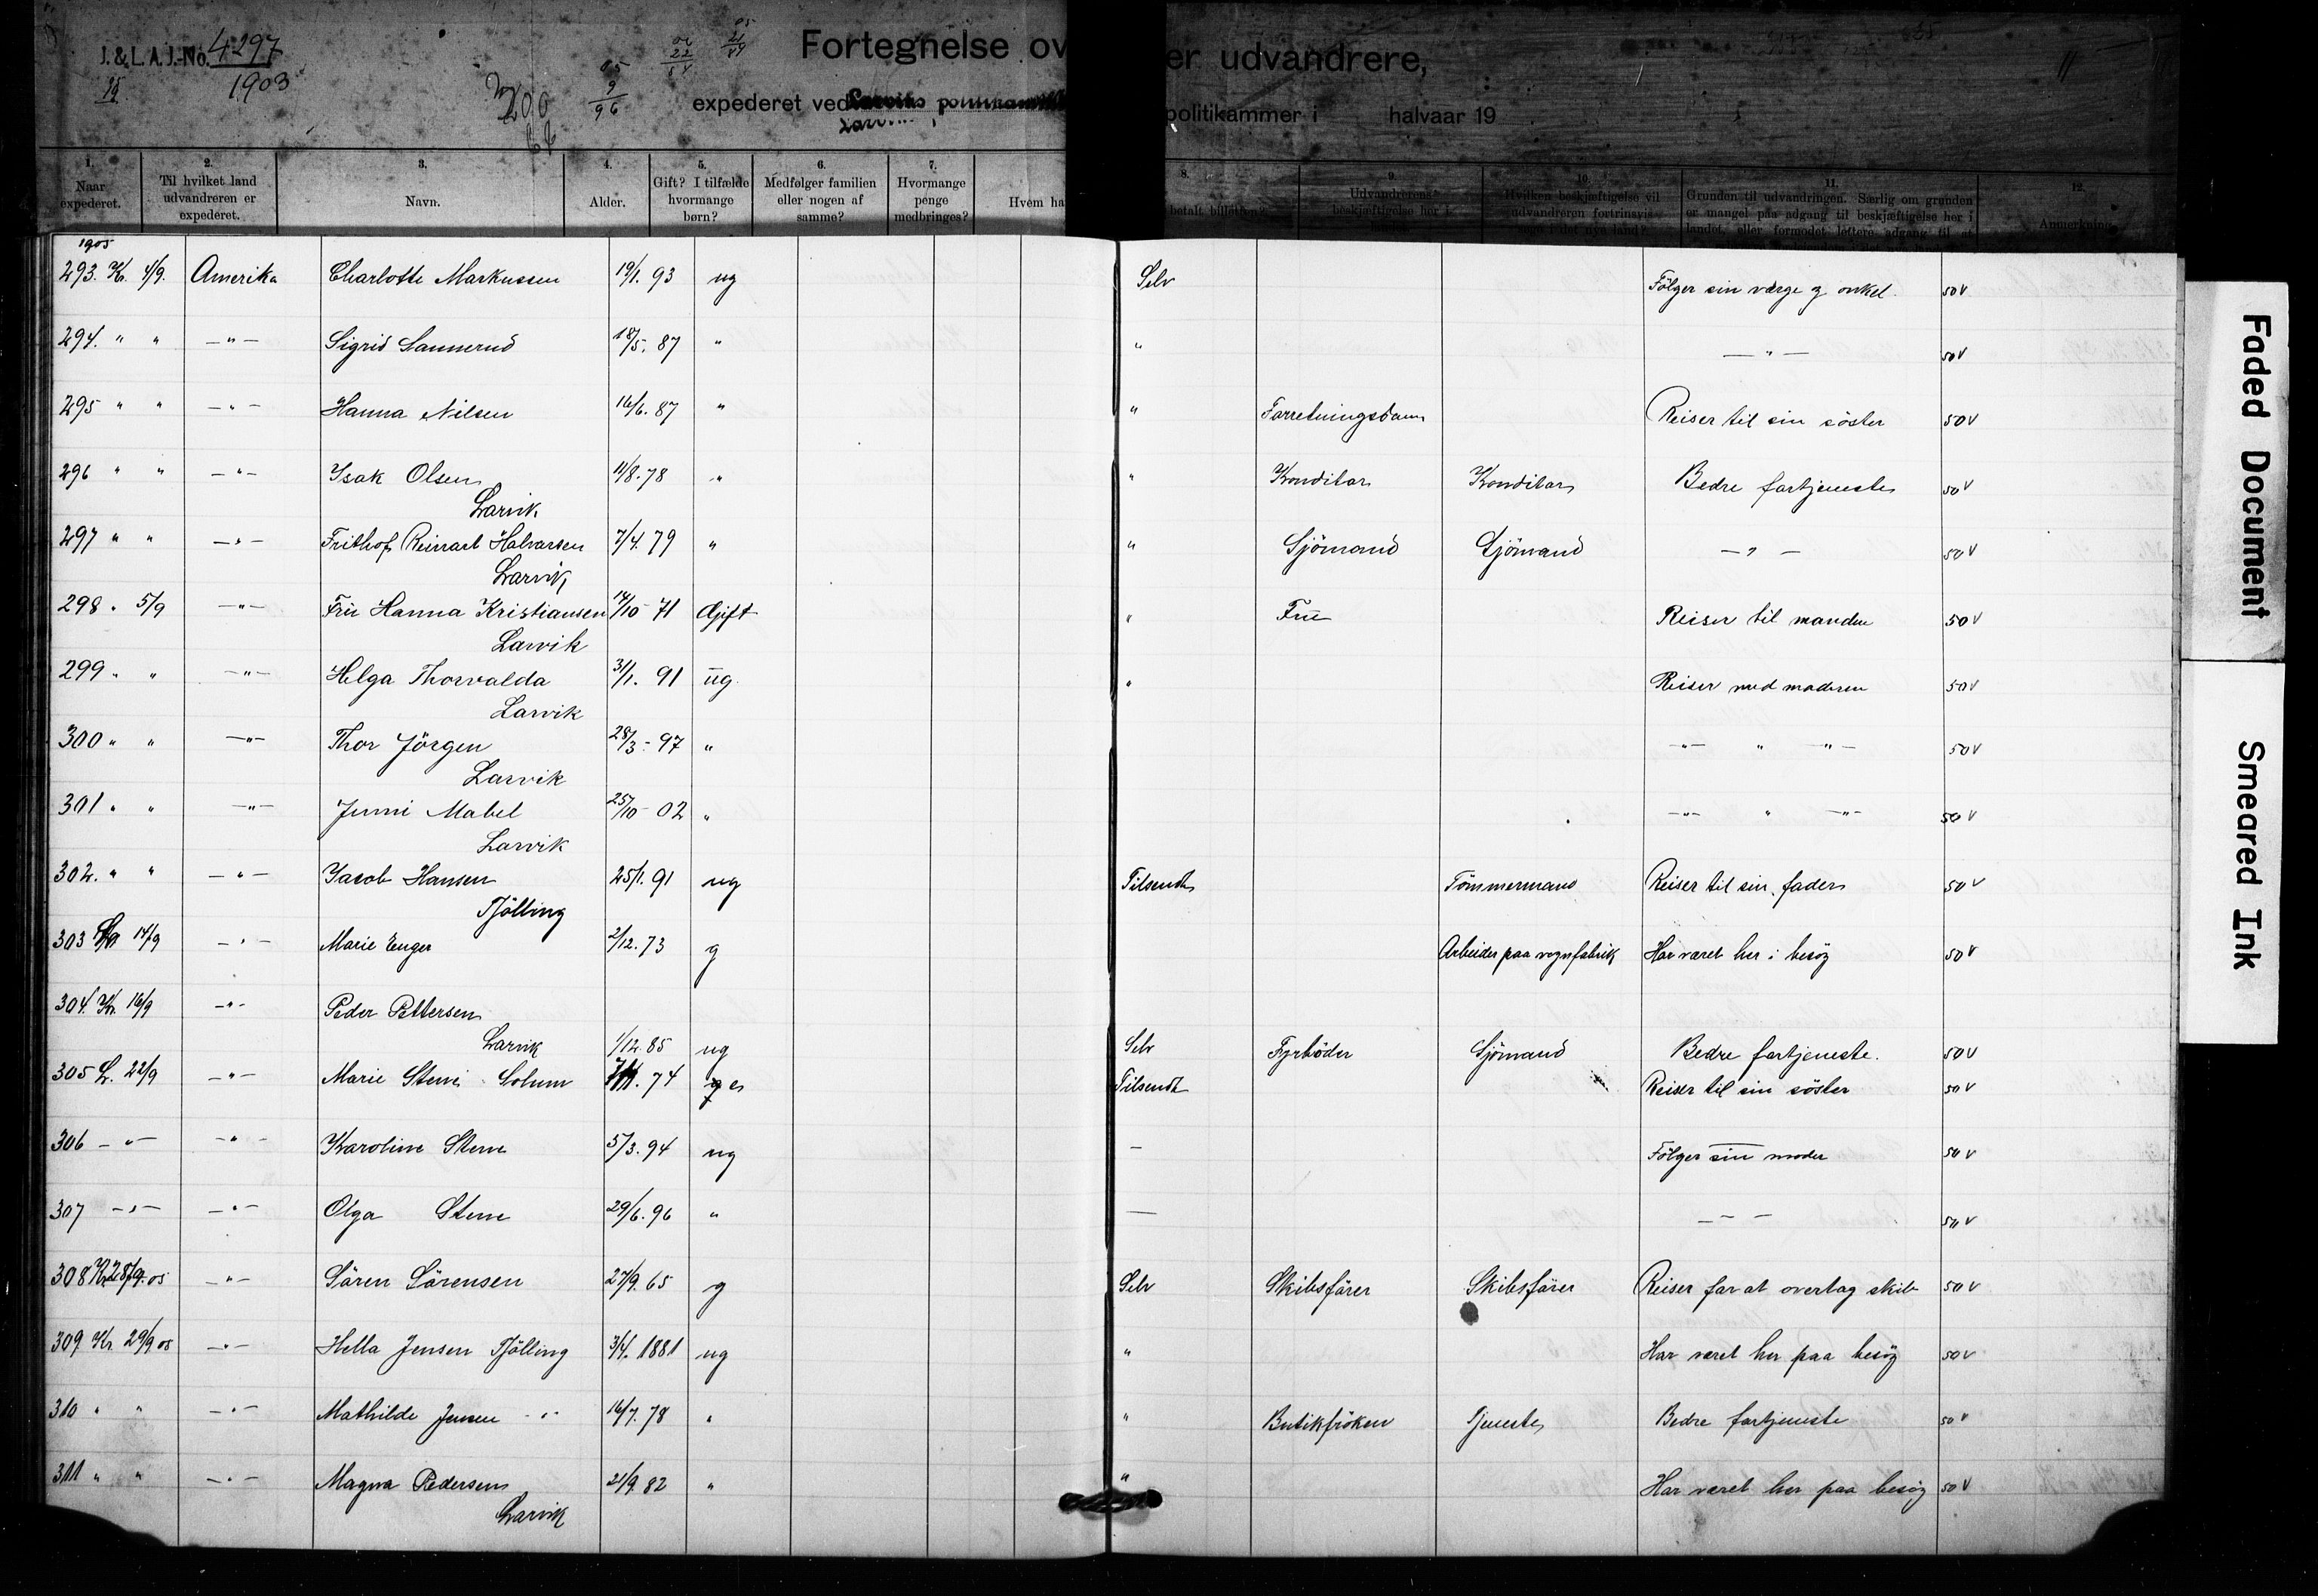 J. & L. A. J.-No. 4297
1903
Fortegnelse over udvandrere,
expederet ved Larviks politikammer i halvaar 19
1. Naar expederet.
2. Til hvilket land udvandreren er expederet.
3. Navn.
4. Alder.
5. Gift? I tilfælde hvormange børn?
6. Medfølger familien eller nogen af samme?
7. Hvormange penge medbringes?
8. Hvem ha betalt billetten?
9. Udvandrerens beskjæftigelse her i
10. Hvilken beskjæftigelse vil udvandreren fortrinsvis søge i det nye land?
11. Grunden til udvandringen. Særlig om grunden er mangel paa adgang til beskjæftigelse her i landet, eller formodet lettere adgang til at
12. Anmerkning.
1905
293. Kr. 4/9. Amerika Charlotte Markussen 19/1. 93 ug Selv Fölger sin værge og onkel. 50 v
294. " " —"— Sigrid Sannerud 18/5. 87 " " —"— 50 v
295 " " —"— Hanna Nilsen 16/6. 87 " " Forretningsdame Reiser til sin söster 50 v
296 " " —"— Isak Olsen 11/8. 78 " " Konditor Konditor Bedre fortjeneste 50 v
Larvik
297 " " —"— Frithof Reinart Halvorsen 7/4. 79 " " Sjömand Sjömand —"— 50 v
Larvik
298 " 5/9 —"— Fru Hanna Kristiansen 14/10 71 Gift " Frue Reiser til manden 50 v
Larvik
299 " " —"— Helga Thorvalda 31/1. 91 ug. " Reiser med moderen 50 v
Larvik
300 " " —"— Thor Jörgen 28/3 - 97 " —"— " —"— 50 v
Larvik
301 " " —"— Jenni Mabel 25/10 - 02 " —"— " —"— 50 v
Larvik
302. " " —"— Jacob Hansen 25/1. 91 ug Tilsendt Tömmermand Reiser til sin fader 50 v
Tjölling
303 14/9 —"— Marie Enger 2/12. 73 g Arbeider paa vognfabrik Har været her i besög 50 v
304. Kr. 16/9 —"— Peder Pettersen
Larvik 1/12. 85 ug Selv Fyrböder Sjömand Bedre fortjeneste. 50 v
305 L. 22/9 —"— Marie Stene Solum 74 Tilsendt Reiser til sin söster 50 v
306 —"— —"— Karoline Stene 5/3. 94 ug — Fölger sin moder 50 v
307 —"— —"— Olga Stene 29/6. 96 " — — " — 50 v
308 Kr. 28/9. 05 —"— Sören Sörensen 27/9. 65 g Selv Skibsförer Skibsförer Reiser for at overtag skib 50 v
309 Kr. 29/9 05 —"— Hella Jensen Tjölling 3/4. 1881 ug " Har været her paa besög 50 v
310 " " —"— Mathilde Jensen —"— 16/7. 78 " " Butikfröken Tjeneste Bedre fortjeneste 50 v
311 " " —"— Magna Pedersen 21/9. 82 " " Har været her paa besög 50 v
Larvik
Faded Document
Smeared Ink